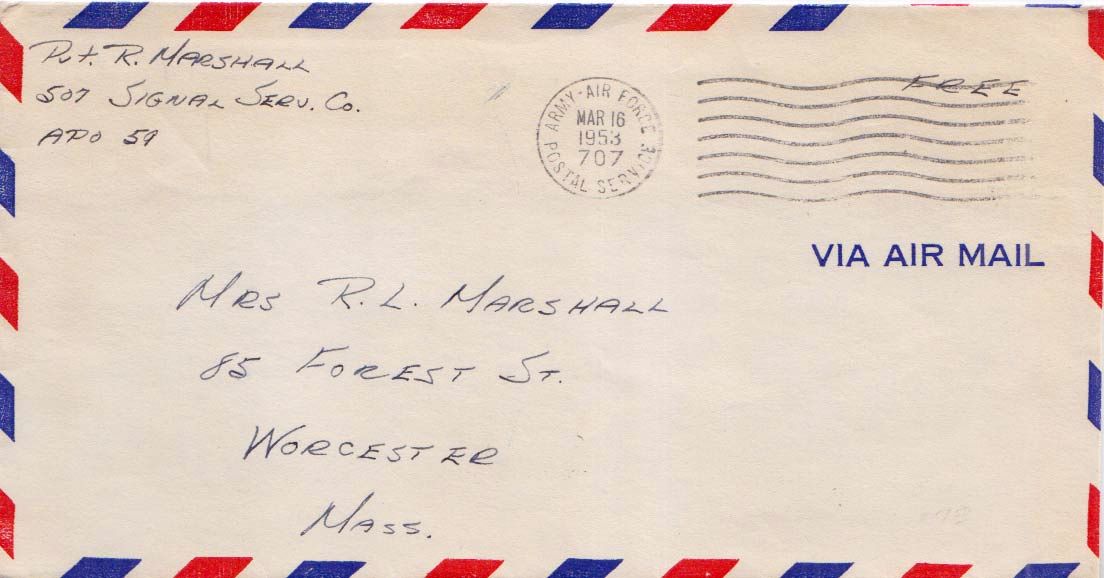 Pvt. R. MARSHALL
507 SIGNAL SERV. CO.
APO 59
ARMY-AIR FORCE
MAR 16
1953
707
POSTAL SERVICE
FREE
VIA AIR MAIL
MRS R. L. MARSHALL
85 FOREST ST.
WORCESTER
MASS.